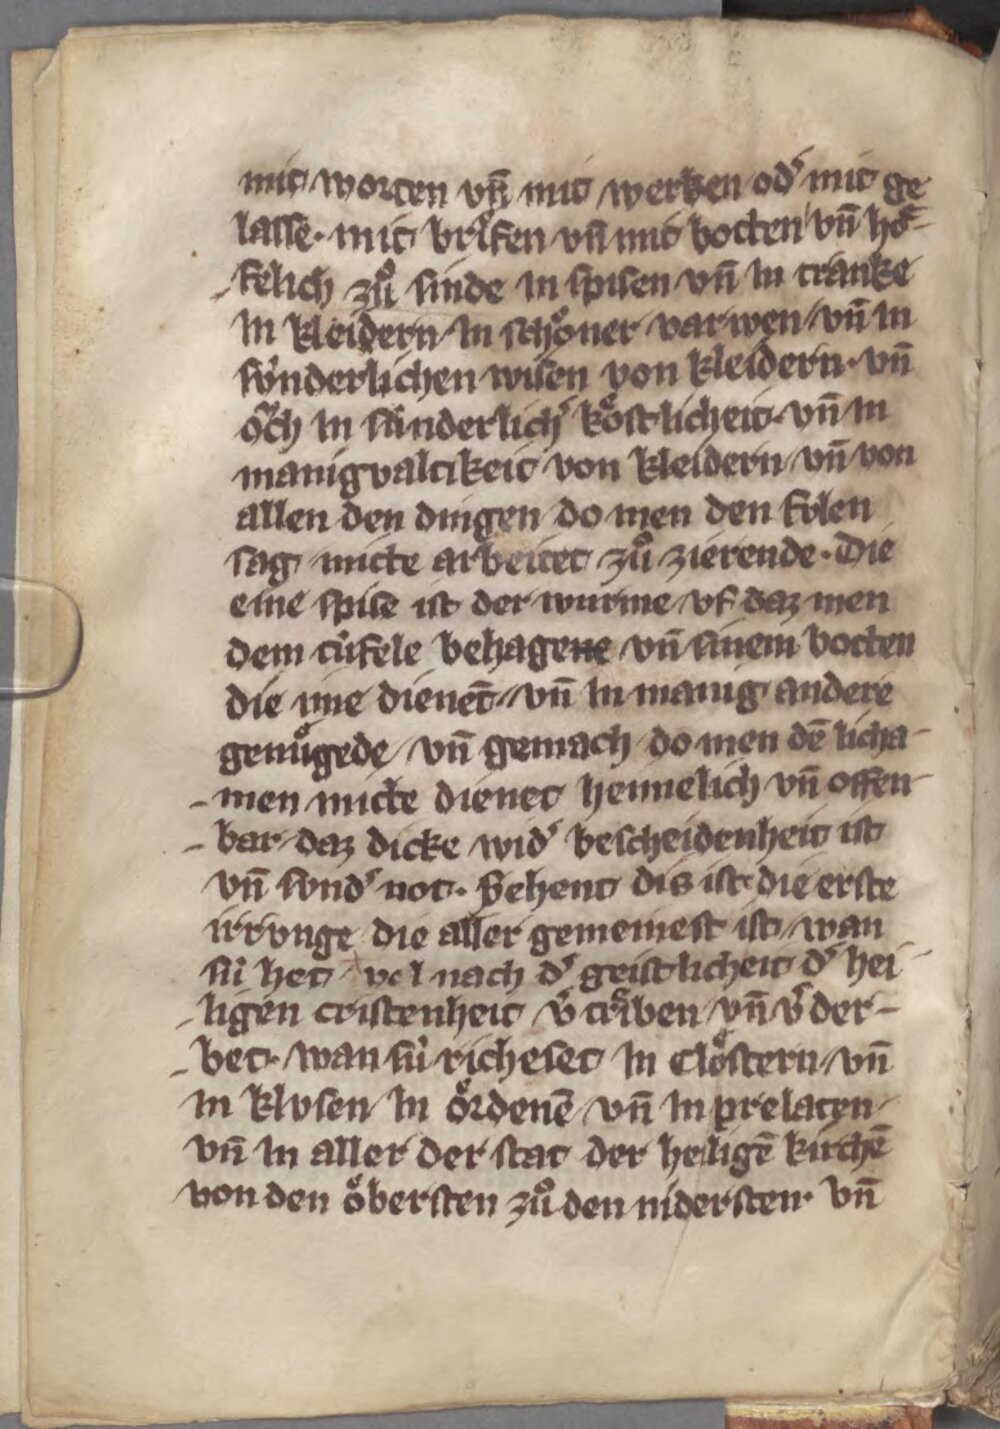 mit worten vn̄ mit werken od͛ mit ge
lasse· mit brͥefen vn̄ mit botten vn̄ hoͤ-
felich zuͦ sinde in spisen vn̄ in tranke
in kleidern in schoͤner varwen vn̄ in
svnderlichen wisen von kleidern· vn̄
oͮch in sunderlich͛ koͤstlicheit· vn̄ in
manigvaltikeit von kleidern vn̄ von
allen den dingen do men den fvlen
sag mitte arbeitet zuͦ zierende· Die
eine spise ist der wurme vf daz men
dem tufele behagene vn̄ sinem botten
die ime dienēt vn̄ in manig andere
genuͤgede vn̄ gemach do men dē licha-
men mitte dienet heimelich vn̄ offen-
bar daz dicke wid͛ bescheidenheit ist
vn̄ svnd͛ not· Sehent dis ist die erste
irrvnge die aller gemeinest ist wan
sú het vol nach d͛ geistlicheit d͛ hei-
ligen cristenheit v͛trͥben vn̄ v͛der-
bet· wan sú richeset in Cloͤstern vn̄
in klvsen in oͤrdenē vn̄ in prelaten
vn̄ in aller der stat der heiligē kirchē
von den oͤbersten zuͦ den nidersten· vn̄